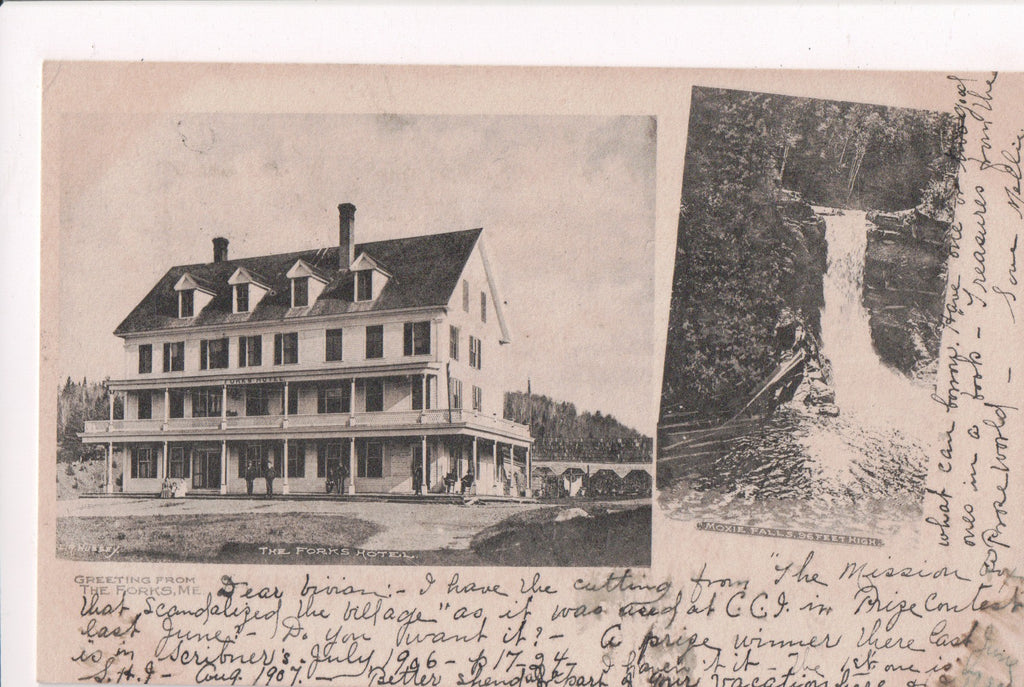 FORKS HOTEL
HUSSEY
THE FORKS HOTEL.
MOXIE FALLS, 96 FEET HIGH.
GREETING FROM
THE FORKS, ME.
Dear Vivian:- I have the cutting from "The Mission Box
that Scandalized the Village" as it was used at C.C.I. in Prize Contest
last June.- Do you want it?- A prize winner there last
is in Scribner's July 1906 - p 17-24- I haven't it - The 1st one is
S.H.J - Aug. 1907. - Better spend part of your vacation here
what I can borrow. Have one or two good
ones in a book - Treasures from the
Prose World - Some Nellie